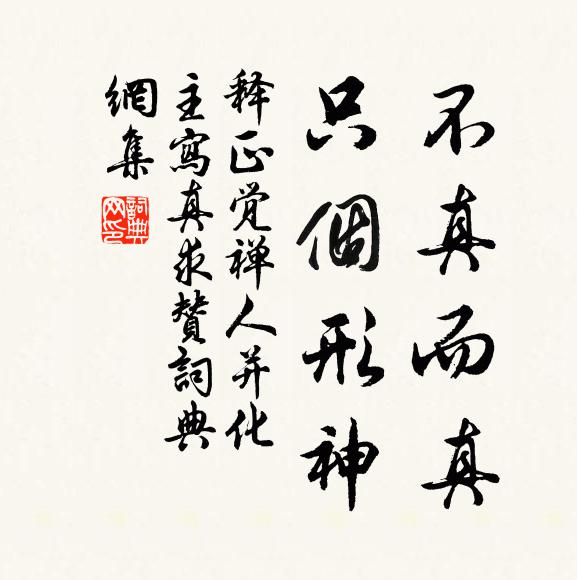 不真而真
只個形神
释正觉禅人并化
主寫真求賛詞典
網集
詞典网印